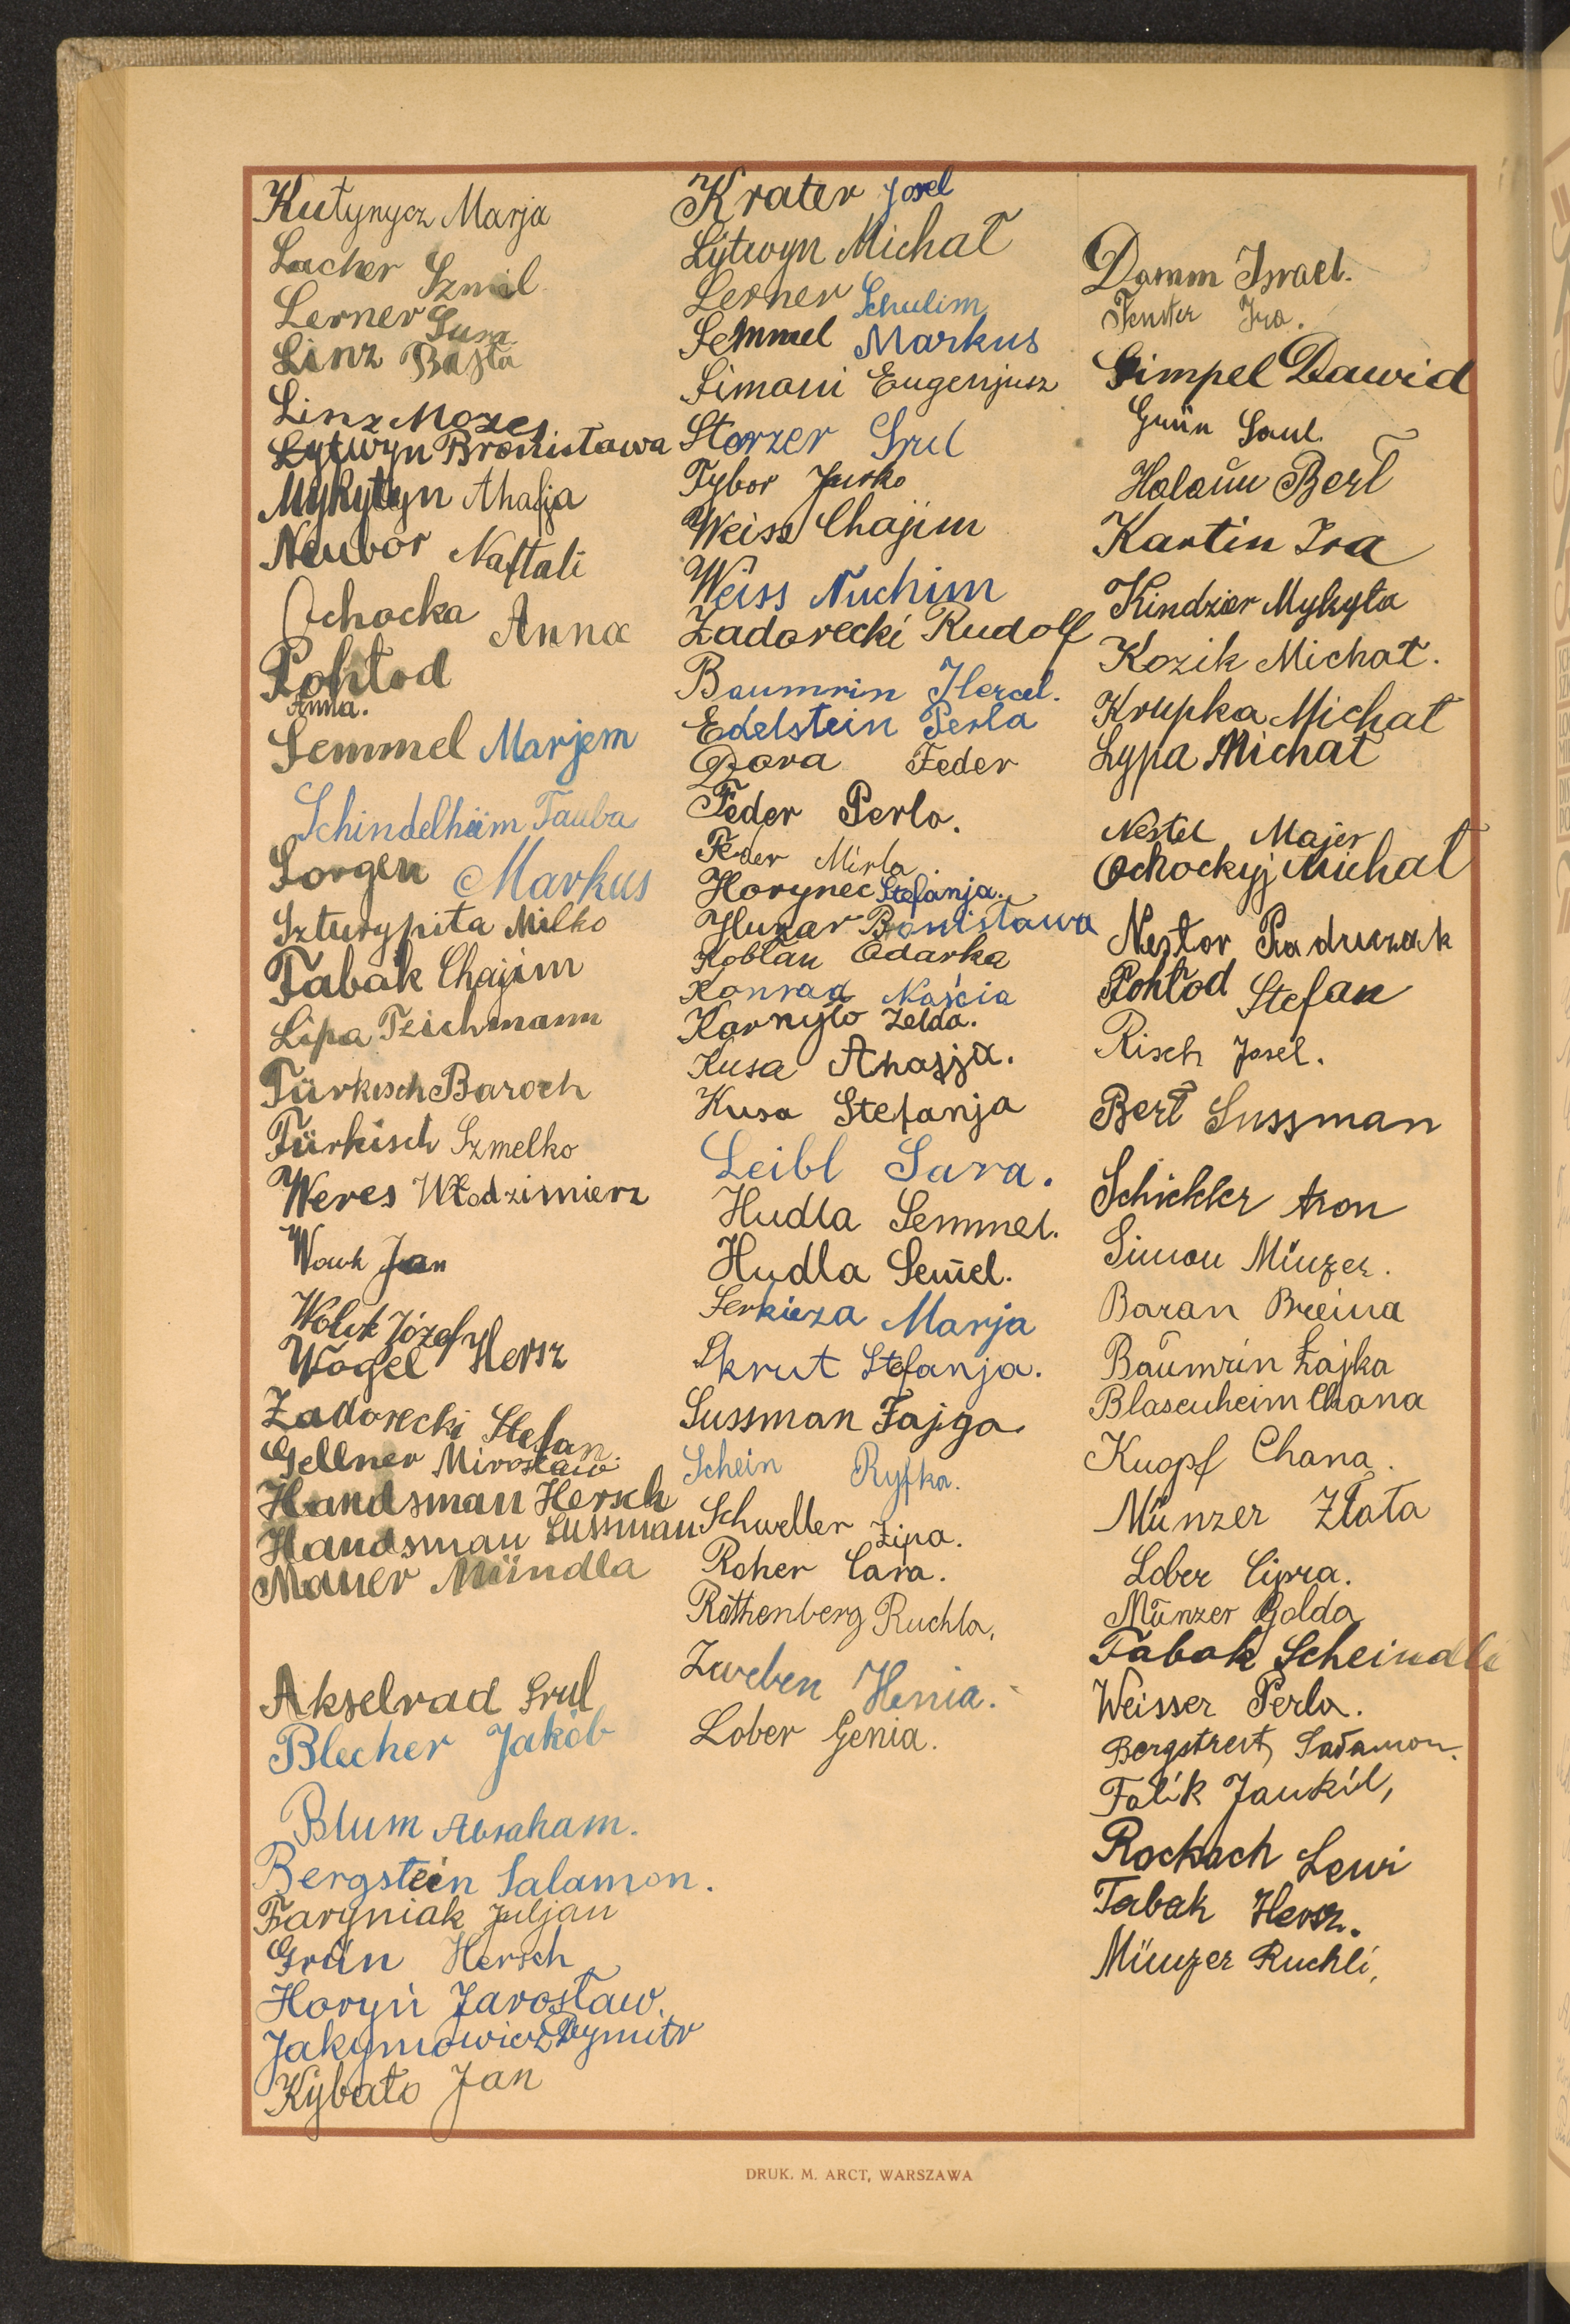 Kutynycz Marja
Lacher Szmil
Lerner Sura
Linz Bajla
Linz Mozes
Łytwyn Bronisława
Mykytyn Ahafja
Neubor Naftali
Ochocka Anna
Pohłod
Anna.
Semmel Marjem
Schindelheim Tauba
Sorgen Markus
Szturypita Milko
Tabak Chajim
Lipa Teichmann
Türkisch Baroch
Türkisch Szmelko
Weres Włodzimierz
Wowk Jan
Wołk Józef
Vogel Hersz
Zadorecki Stefan
Gellner Mirosław
Handsman Hersch
Handsman Sussman
Mauer Mündla
Akselrad Srul
Blecher Jakób
Blum Abraham.
Bergstein Salamon.
Faryniak Juljan
Grün Hersch
Horyń Jarosław.
Jakymowicz Dymitr
Kybało Jan
Krater Josel
Łytwyn Michał
Lerner Schulim
Semmel Markus
Simoni Eugenjusz
Storzer Srul
Tybor Jurko
Weiss Chajim
Weiss Nuchim
Zadorecki Rudolf
Baumrin Hercel.
Edelstein Perla
Dora Feder
Feder Perla.
Feder Mirla.
Horyneć Stefanja.
Huzar Bronisława
Kobłan Odarka
Konrad Naścia
Kornyło Zelda.
Kusa Ahafja.
Kusa Stefanja
Leibl Sara.
Hudla Semmel.
Hudla Sem̄el.
Serkiza Marja
Skrut Stefanja.
Sussman Fajga
Schein Ryfka.
Schweller Zipa.
Roher Cara.
Rothenberg Ruchla,
Zweben Henia.
Lober Genia.
Damm Israel.
Fenster Ira.
Gimpel Dawid
Grün Saul.
Holoün Berl
Kartin Ira
Kindzier Mykyta
Kozik Michał.
Krupka Michał
Łypa Michał
Nestel Majer
Ochockyj Michał
Nestor Paduczak
Pohłod Stefan
Risch Josel.
Berl Sussman
Schickler Aron
Simon Münzer.
Baran Breina
Baumrin Łajka
Blasenheim Chana
Kuopf Chana.
Münzer Złata
Lober Cipra.
Münzer Golda
Tabak Scheindli
Weisser Perla.
Bergstreit, Sałamon.
Falik Jankil,
Rockach Lewi
Tabak Hersz.
Münzer Ruchli,
DRUK. M. ARCT, WARSZAWA